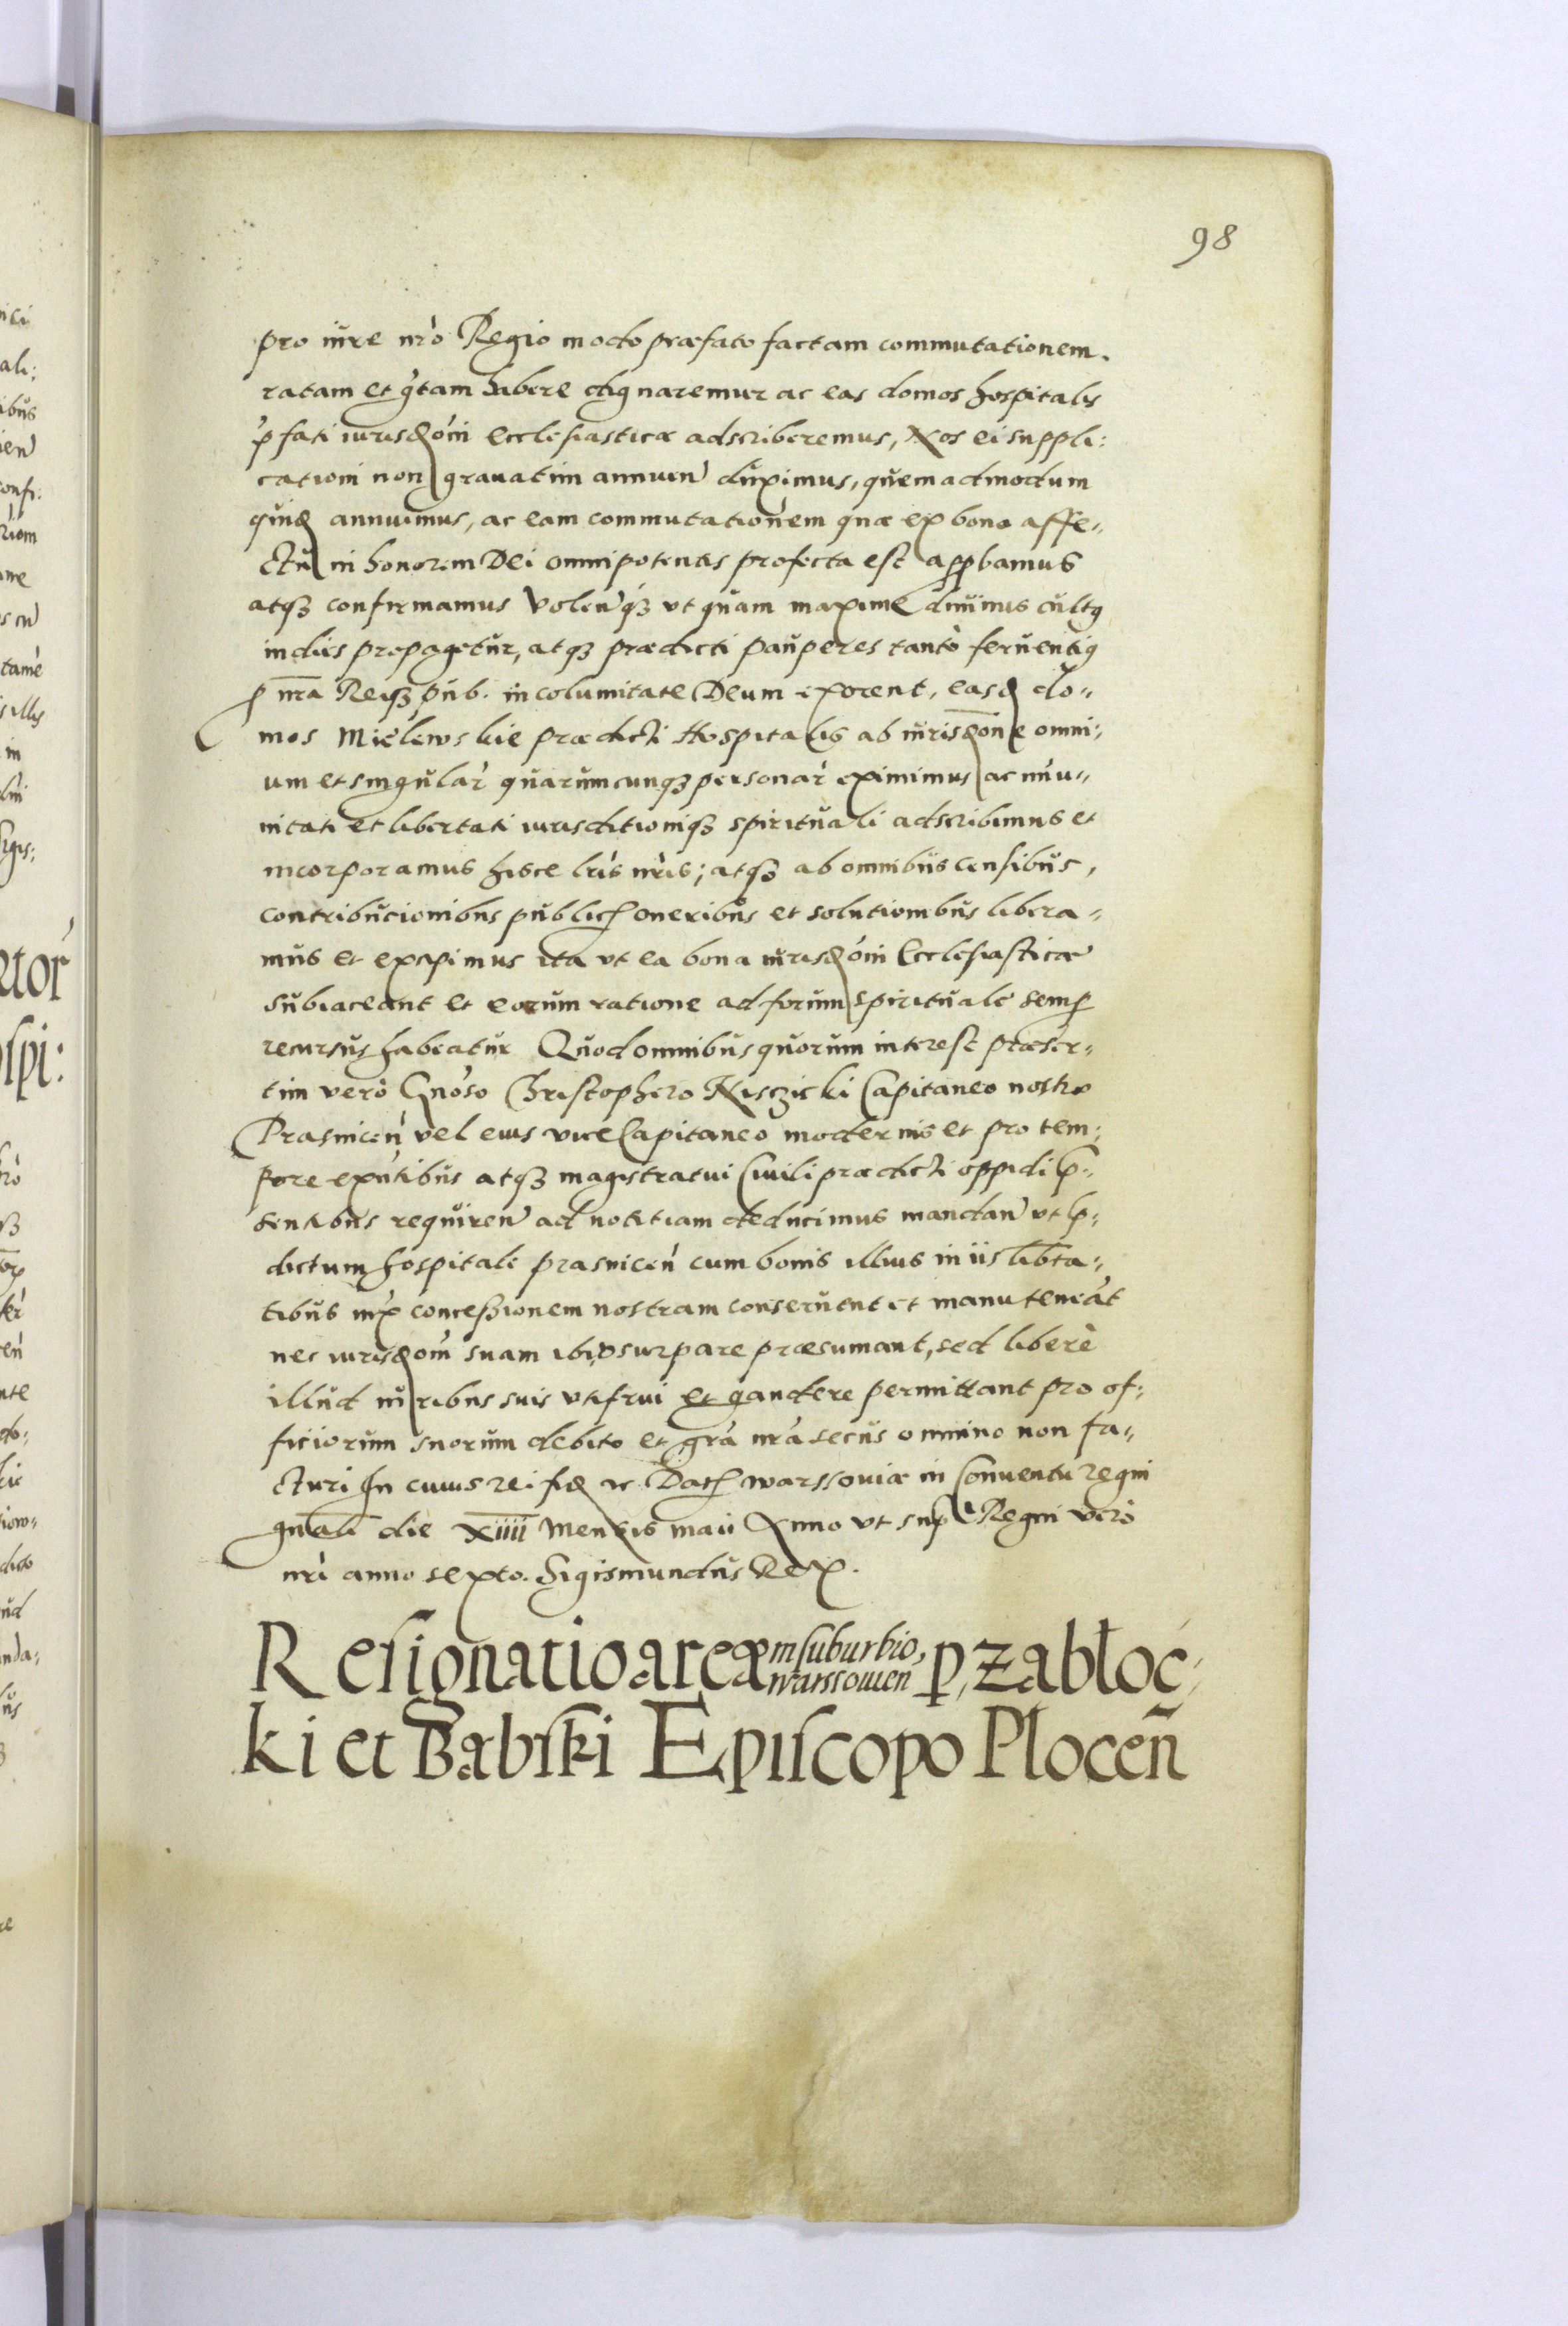 98
pro iure nr̃o Regio modo præfato factam commutationem.
ratam et gr̃tam habere dignaremur ac eas domos hospitalis
p̃fati iurisd̃oni ecclesiasticæ adscriberemus, Nos ei suppli:
cationi non grauatim annuen̄ duximus, quemadmodum
quid̃ annuimus, ac eam commutationem quæ ex bono affe-
ctu in honorem Dei omnipotentis profecta est approbamus
atqꝫ confirmamus Volen̄qꝫ vt quam maxime diuinus cultꝰ
indies propagetur, atqꝫ prædicti pauperes tanto feruentiꝰ
ꝓ nr̃a Reiqꝫ pub. incolumitate Deum exorent, easd̃ do-
mos Mielewskie prædicti Hospitalis ab iurisd̃one omni-
um et singular̃ quarumcunqꝫ personar̃ eximimus ac mu-
nitati et libertati iurisditioniqꝫ spirituali adscribimus et
incorporamus hisce lr̃is nr̃is; atqꝫ ab omnibus censibus,
contribucionibus publicꝭ oneribus et solutionibus libera-
mus et excipimus ita vt ea bona iurisd̃oni Ecclesiasticæ
subiaceant et eorum ratione ad forum spirituale semꝑ
recursus habeatur Quod omnibus quorum interest præser-
tim vero Gn̄oso Christophero Nisczicki Capitaneo nostro
Prasnicen̄ vel eius vice Capitaneo modernis et pro tem-
pore exn̄tibus atqꝫ magistratui Ciuili prædicti oppidi p̃-
sentibus requiren̄ ad notitiam deducimus mandan̄ vt p̃-
dictum hospitale prasnicen̄ cum bonis illius in iis lib̃ta-
tibus iux̃ concessionem nostram conseruent et manuteneãt
nec iurisd̃om̃ suam ibi vsurpare præsumant, sed libere
illud iuribus suis vti frui et gaudere permittant pro of-
ficiorum suorum debito et gr̃a nr̃a secus omnino non fa-
cturi In cuius rei fid̃ ꝛc Datꝭ warssouiæ in Conuentu regni
gn̄ali die XIIII Mensis maii Anno vt supra Regni vero
nr̃i anno sexto. Sigismundus Rex.
Resignatio areæ in suburbio warssouien̄ ꝑ, zabłoc-
ki et Bąbski Episcopo Płocen̄